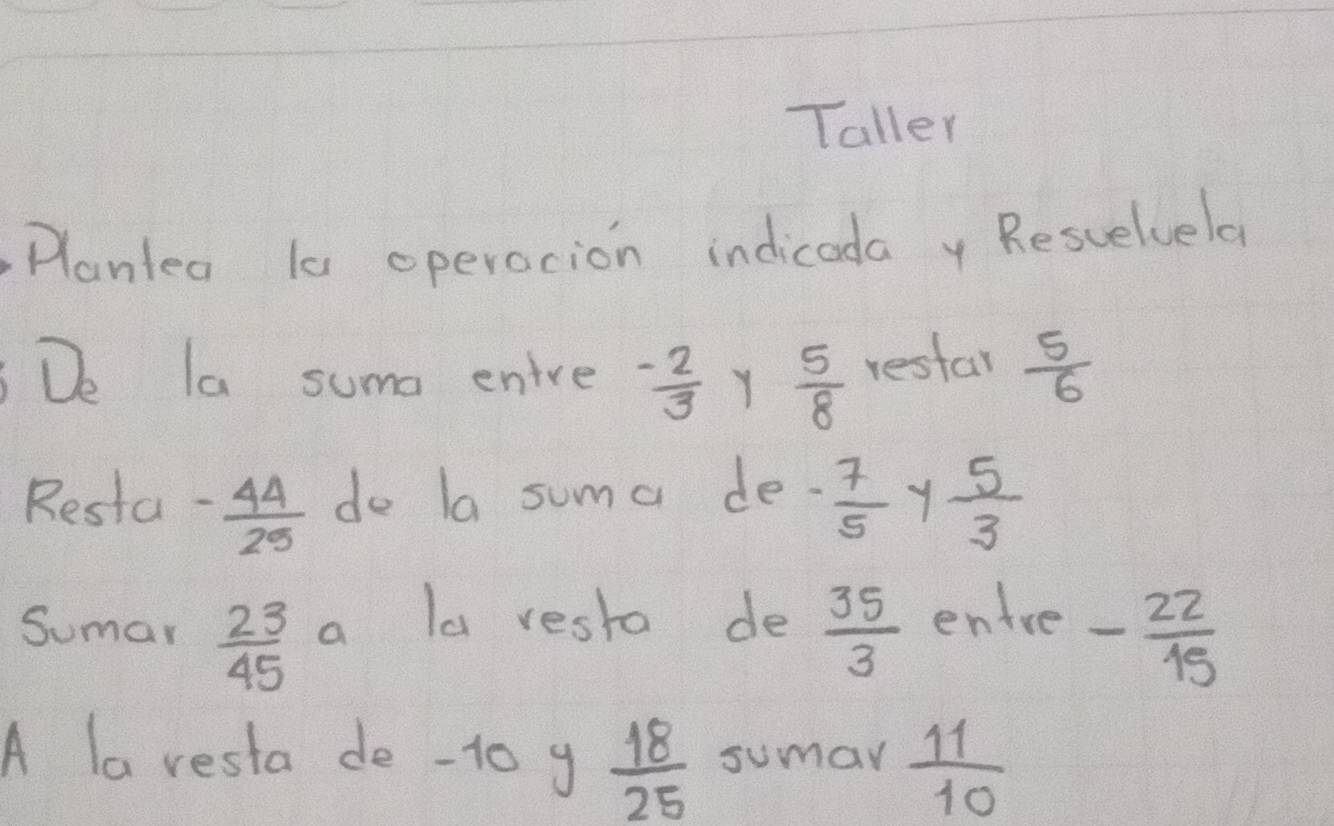 Taller
Plantea la operación indicada y Resuelvela
De la suma entre -2/3 y 5/8 restar 5/6
Resta -44/25 de la suma de -7/5 y 5/3
Sumar 23/45 a la resta de 35/3 entre -22/15
A la resta de -10 y 18/25 sumar 11/10